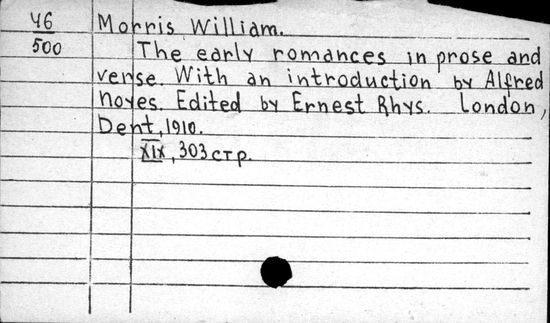 46
500
Morris William.
The early romances in prose and
verse. With an introduction by Alfred
Noyes. Edited by Ernest Rhys. London,
Dent, 1910.
XIX, 303 стр.